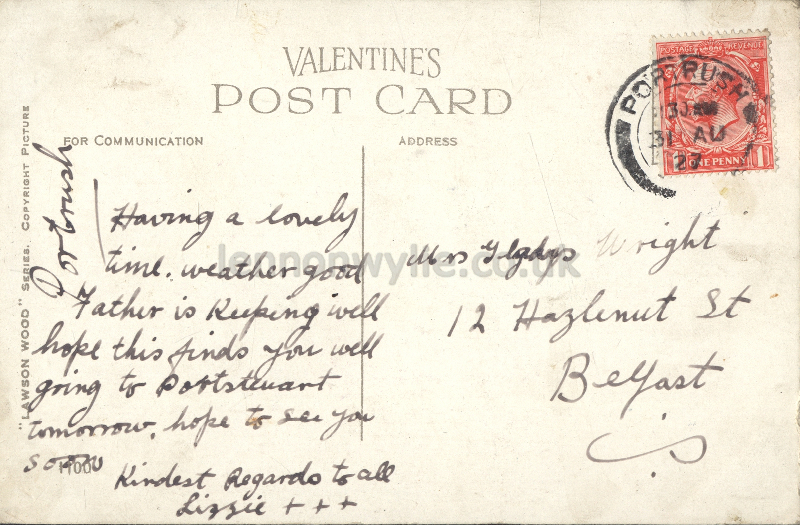 VALENTINE'S
POST CARD
FOR COMMUNICATION
ADDRESS
"LAWSON WOOD" SERIES. COPYRIGHT PICTURE
POSTAGE REVENUE
ONE PENNY
PORTRUSH
31 AU
27
Portrush
Having a lovely
time. weather good
Father is Keeping well
hope this finds you well
going to Portstewart
tomorrow. hope to see you
soon
Kindest Regards to all
Lizzie + + +
Mrs Glgdys Wright
12 Hazlenut St
Belfast
lennonwylie.co.uk